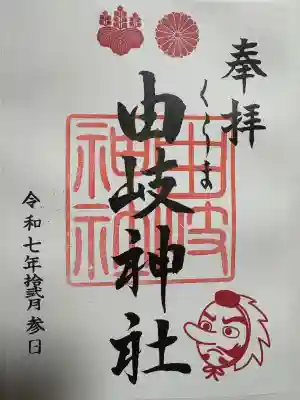 奉拝
くらま
由岐神社
由岐
神社
令和七年拾弐月参日